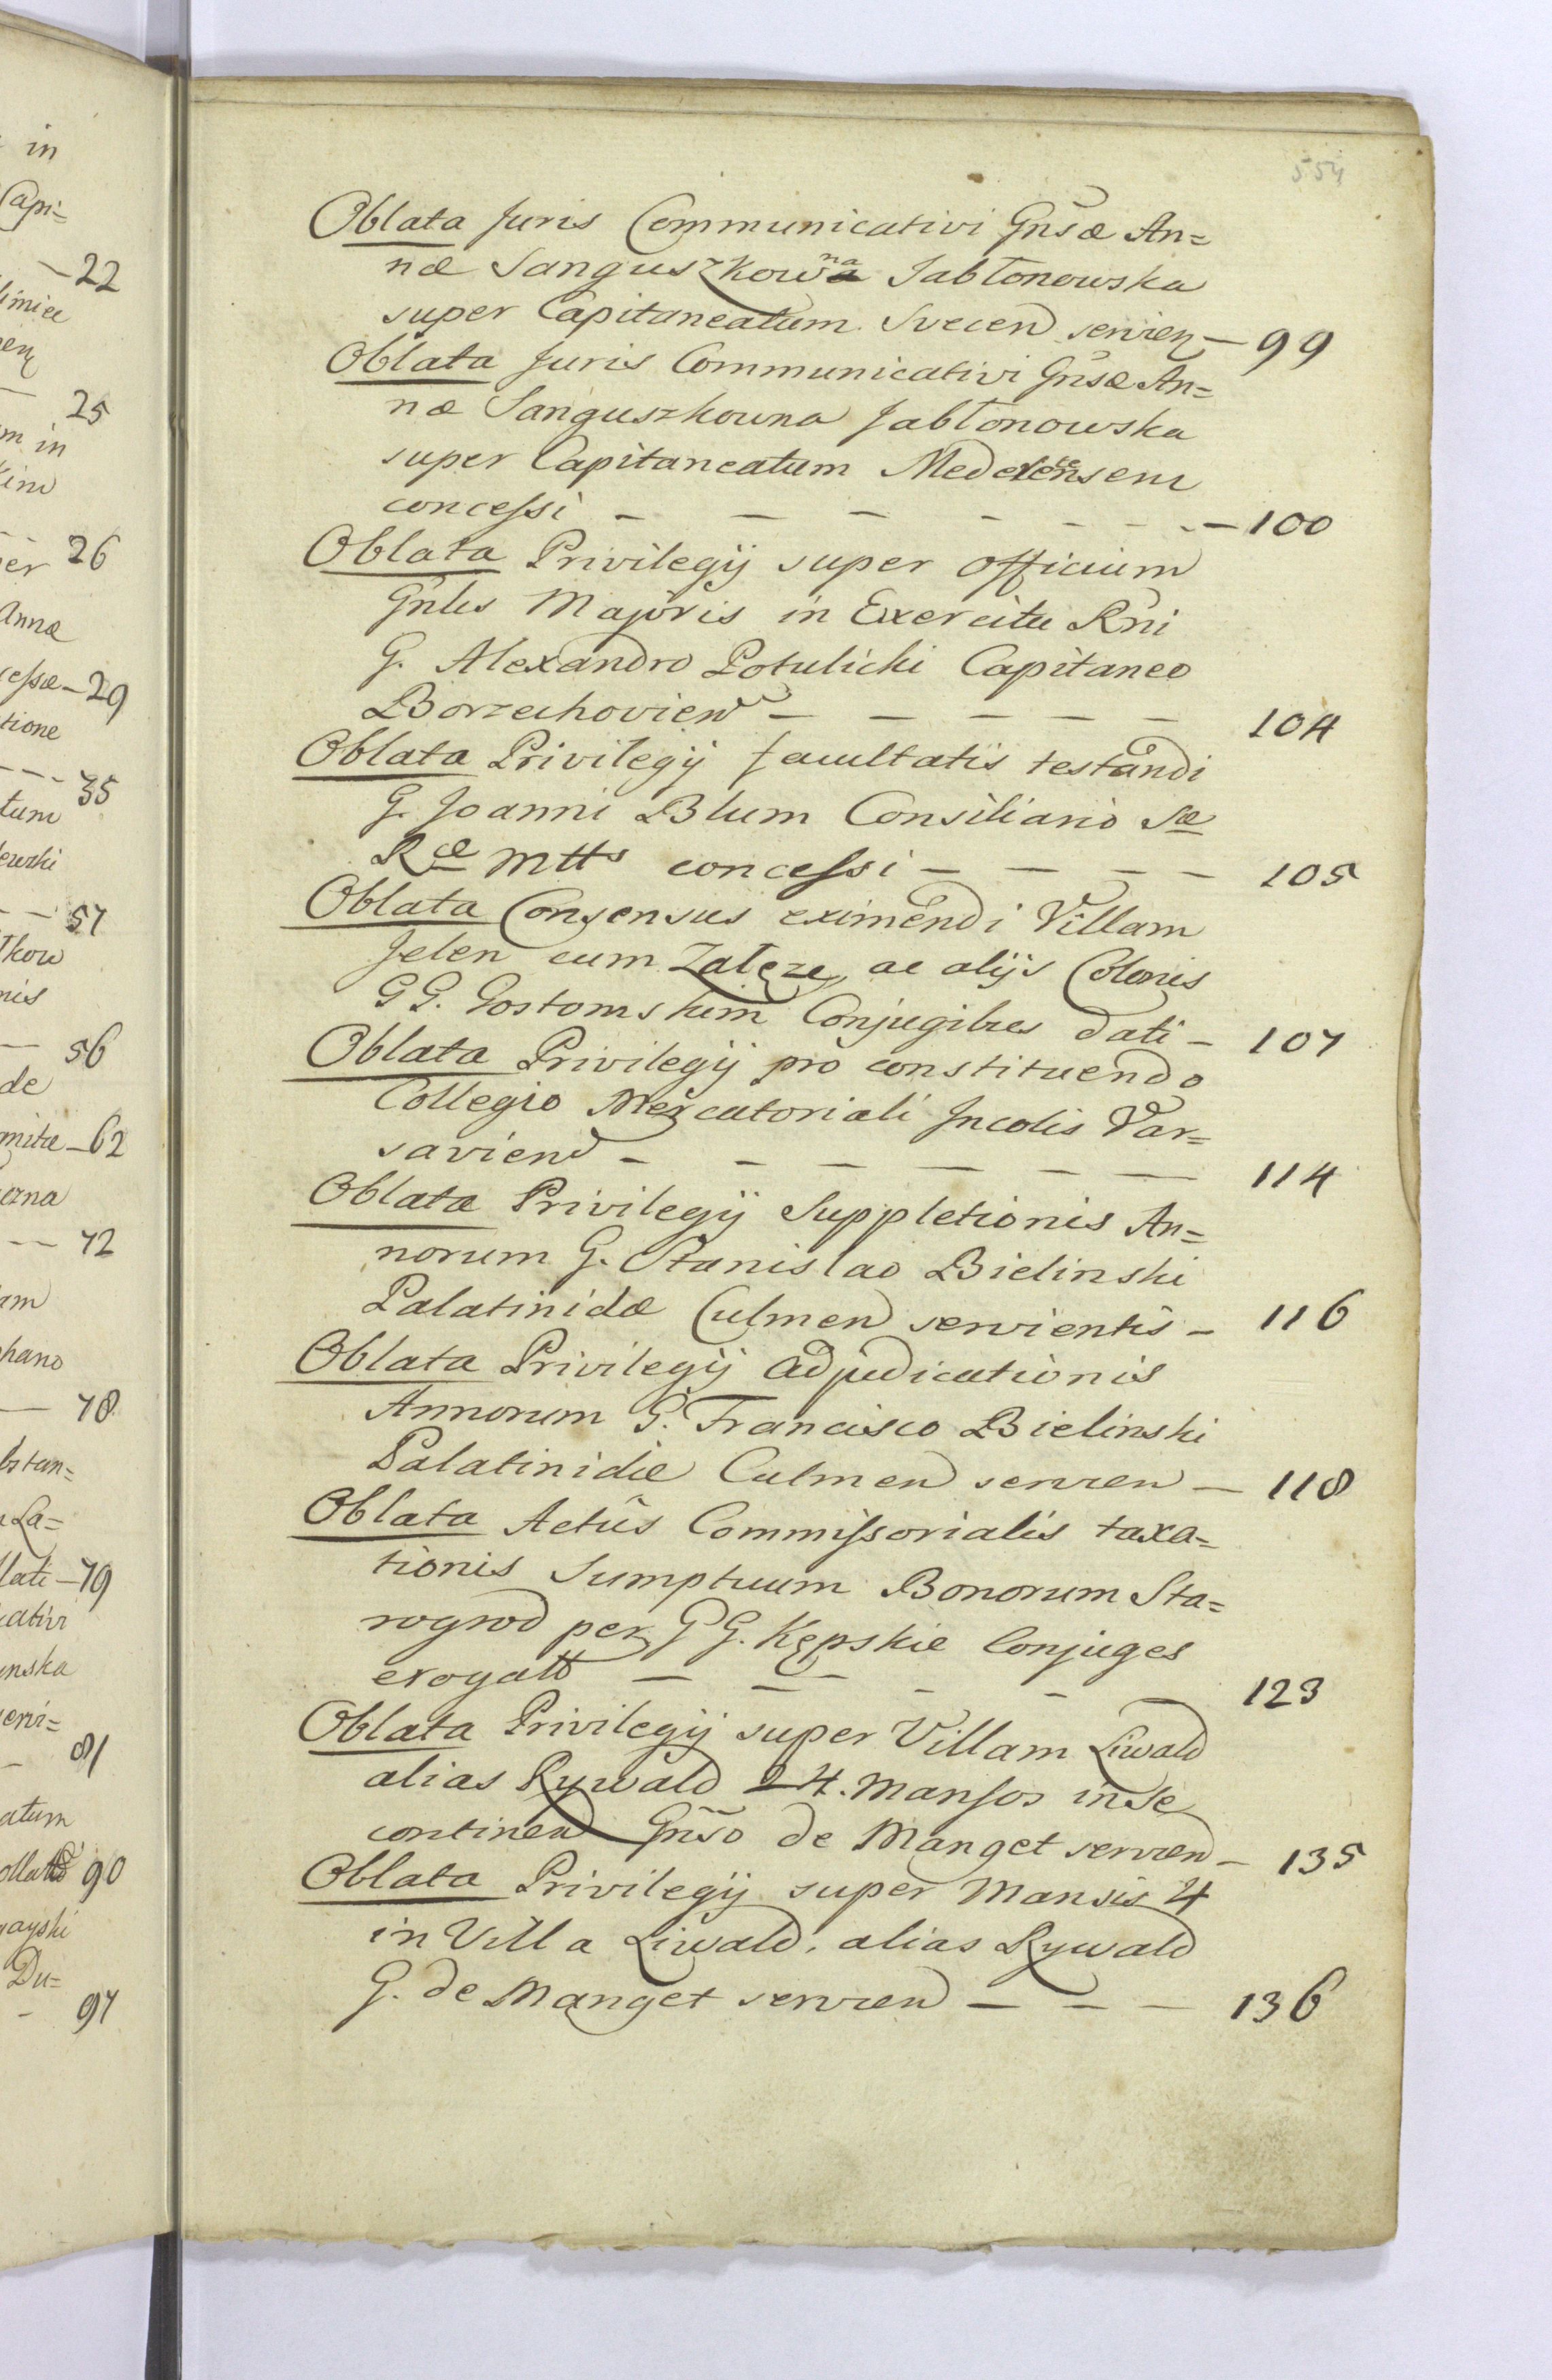 in
Capi=
— 22
25
m in
26
er
Anna
cessæ — 29
tione
35
tum
ewski
57
kow
nis
56
de
mitæ — 62
erna
-- 72
am
hano
— 78
stan=
La=
lati — 79
cativi
nska
servi=
81
atum
90
yayski
Du=
97
554
Oblata Juris Communicativi Gnsæ An=
næ Sanguszkowna Jabłonowska
super Capitaneatum Svecen servien — 99
Oblata Juris Communicativi Gnsæ An=
næ Sanguszkowna Jabłonowska
super Capitaneatum
concessi — — — — — — — 100
Oblata Privilegij super officium
Gnlis Majoris in Exercitu Rni
G. Alexandro Potulicki Capitaneo
Borzechovien — — — — — 104
Oblata Privilegij facultatis testandi
G. Joanni Blum Consiliario Sæ
Ræ Mtts concessi — — — — 105
Oblata Consensus eximendi Villam
Jelen cum Załęze, ac alijs Colonis
GG. Gostomskim Conjugibus dati — 107
Oblata Privilegij pro constituendo
Collegio Mercatoriali Incolis Var=
savien — — — — — — 114
Oblata Privilegij Suppletionis An=
norum G. Stanislao Bielinski
Palatinidæ Culmen servientis — 116
Oblata Privilegij adjudicationis
Annorum G. Francisco Bielinski
Palatinidæ Culmen servien — 118
Oblata Actûs Commissorialis taxa=
tionis Sumptuum Bonorum Sta=
rogrod per GG. Kępskie Conjuges
erogatt — — — — — — 123
Oblata Privilegij super Villam Liwald
alias Rywald 24. Mansos in se
continen Gnso de Manget servien — 135
Oblata Privilegij super Mansis 4
in Villa Liwald, alias Rywald
G. de Manget servien — — — 136